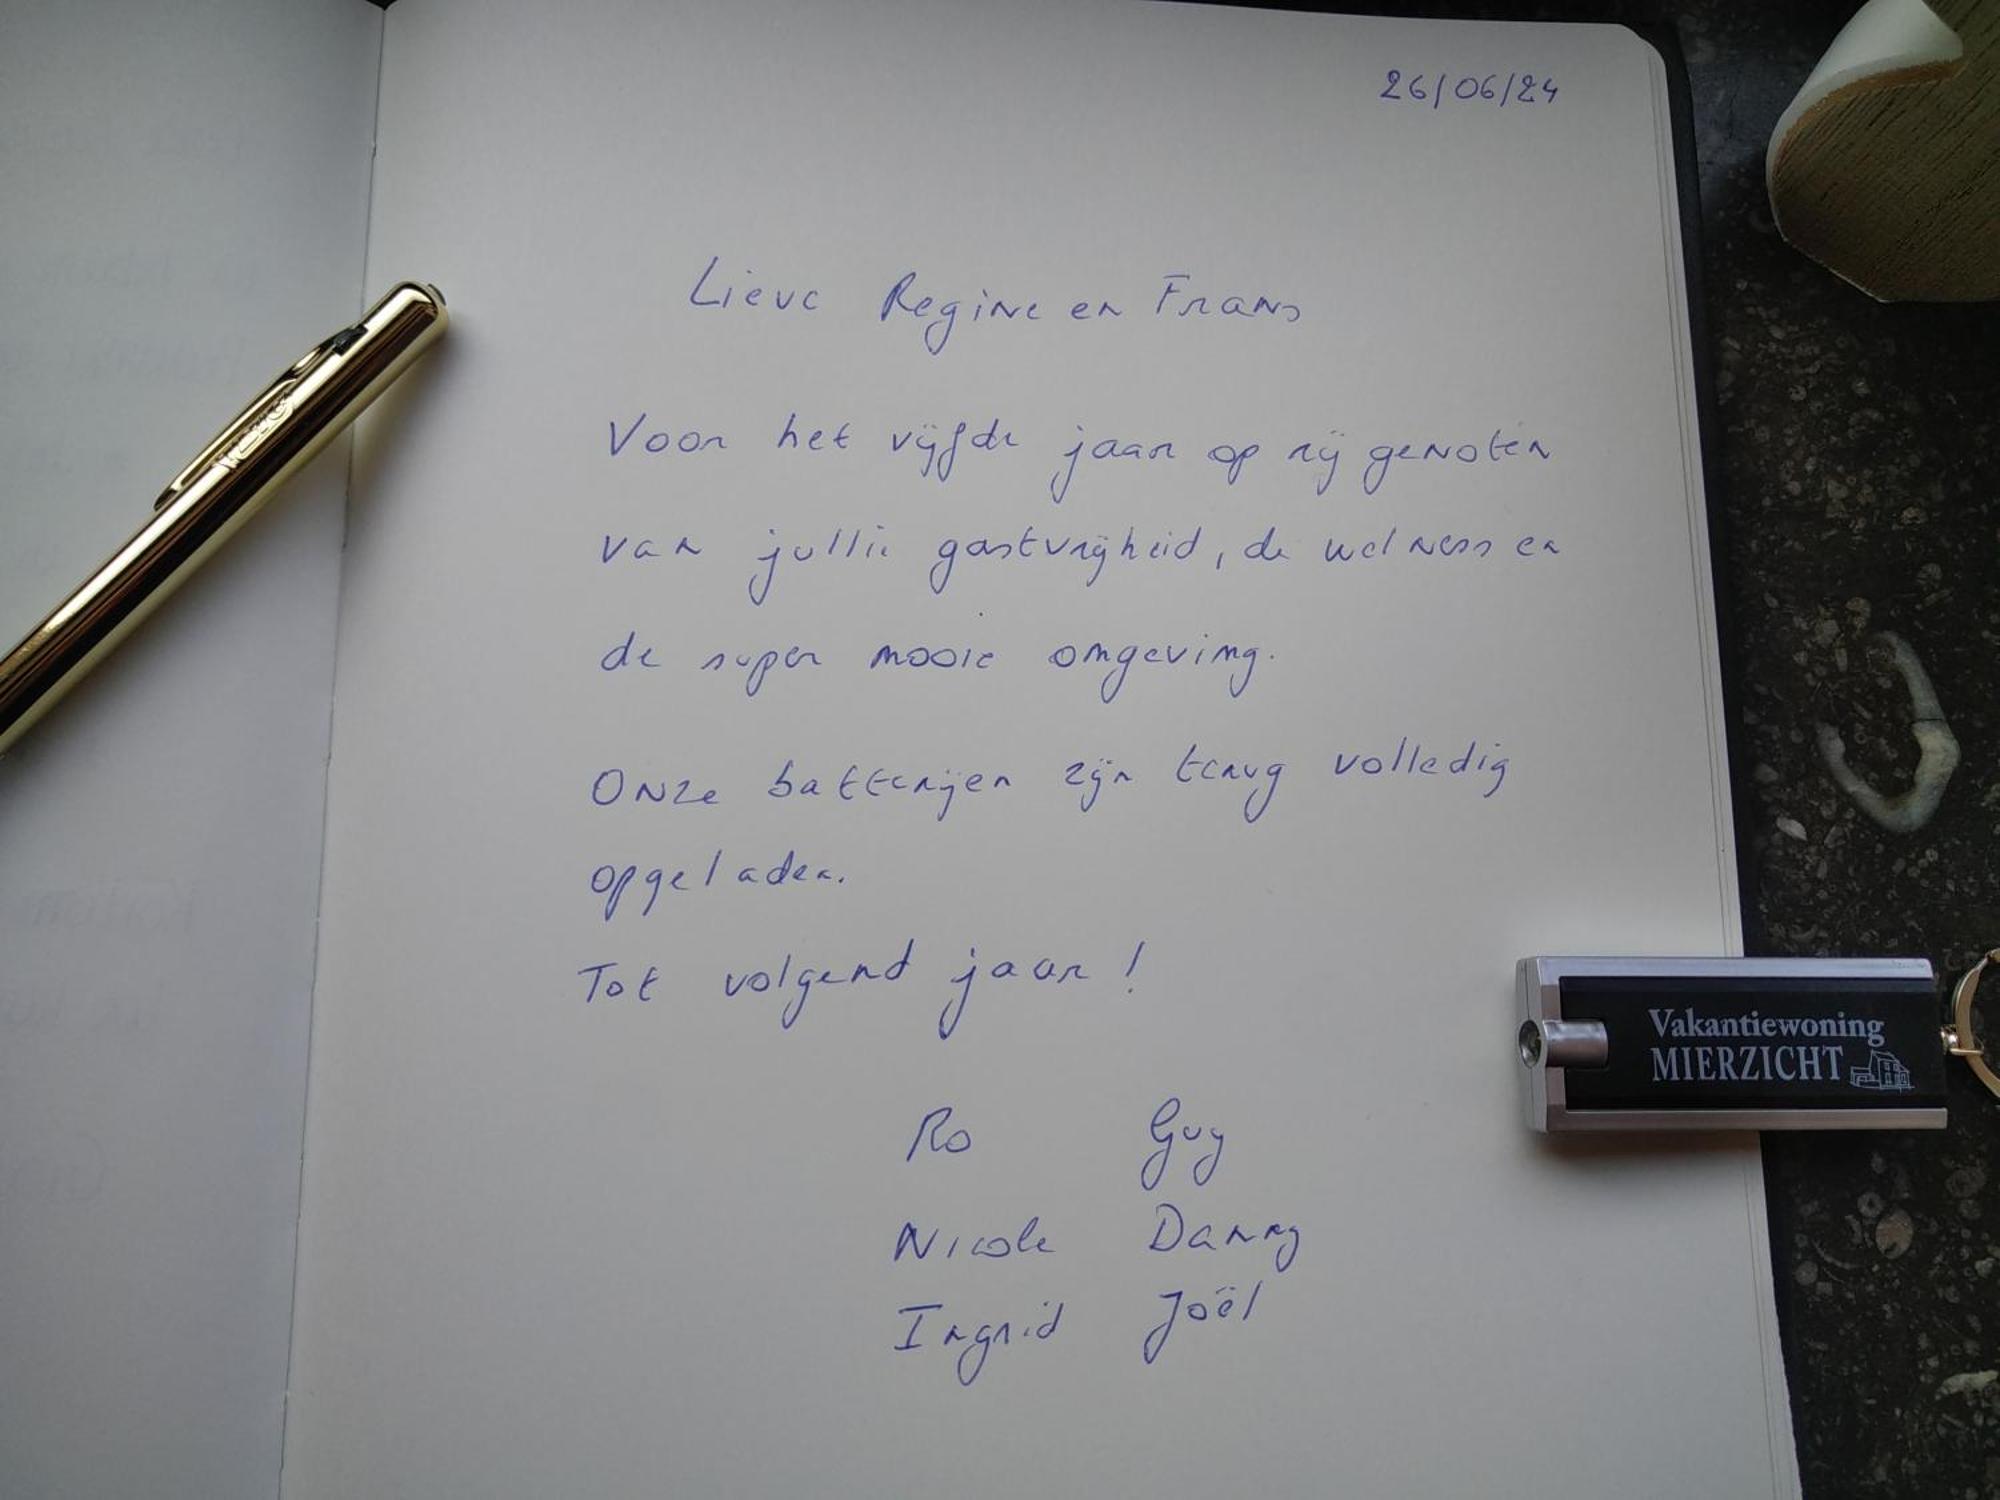 26/06/24
Lieve Regine en Frans
Voor het vijfde jaar op rij genoten
van jullie gastvrijheid, de welness en
de super mooie omgeving.
Onze batterijen zijn terug volledig
opgeladen.
Tot volgend jaar!
Vakantiewoning
MIERZICHT
Ro Guy
Nicole Danny
Ingrid Joël